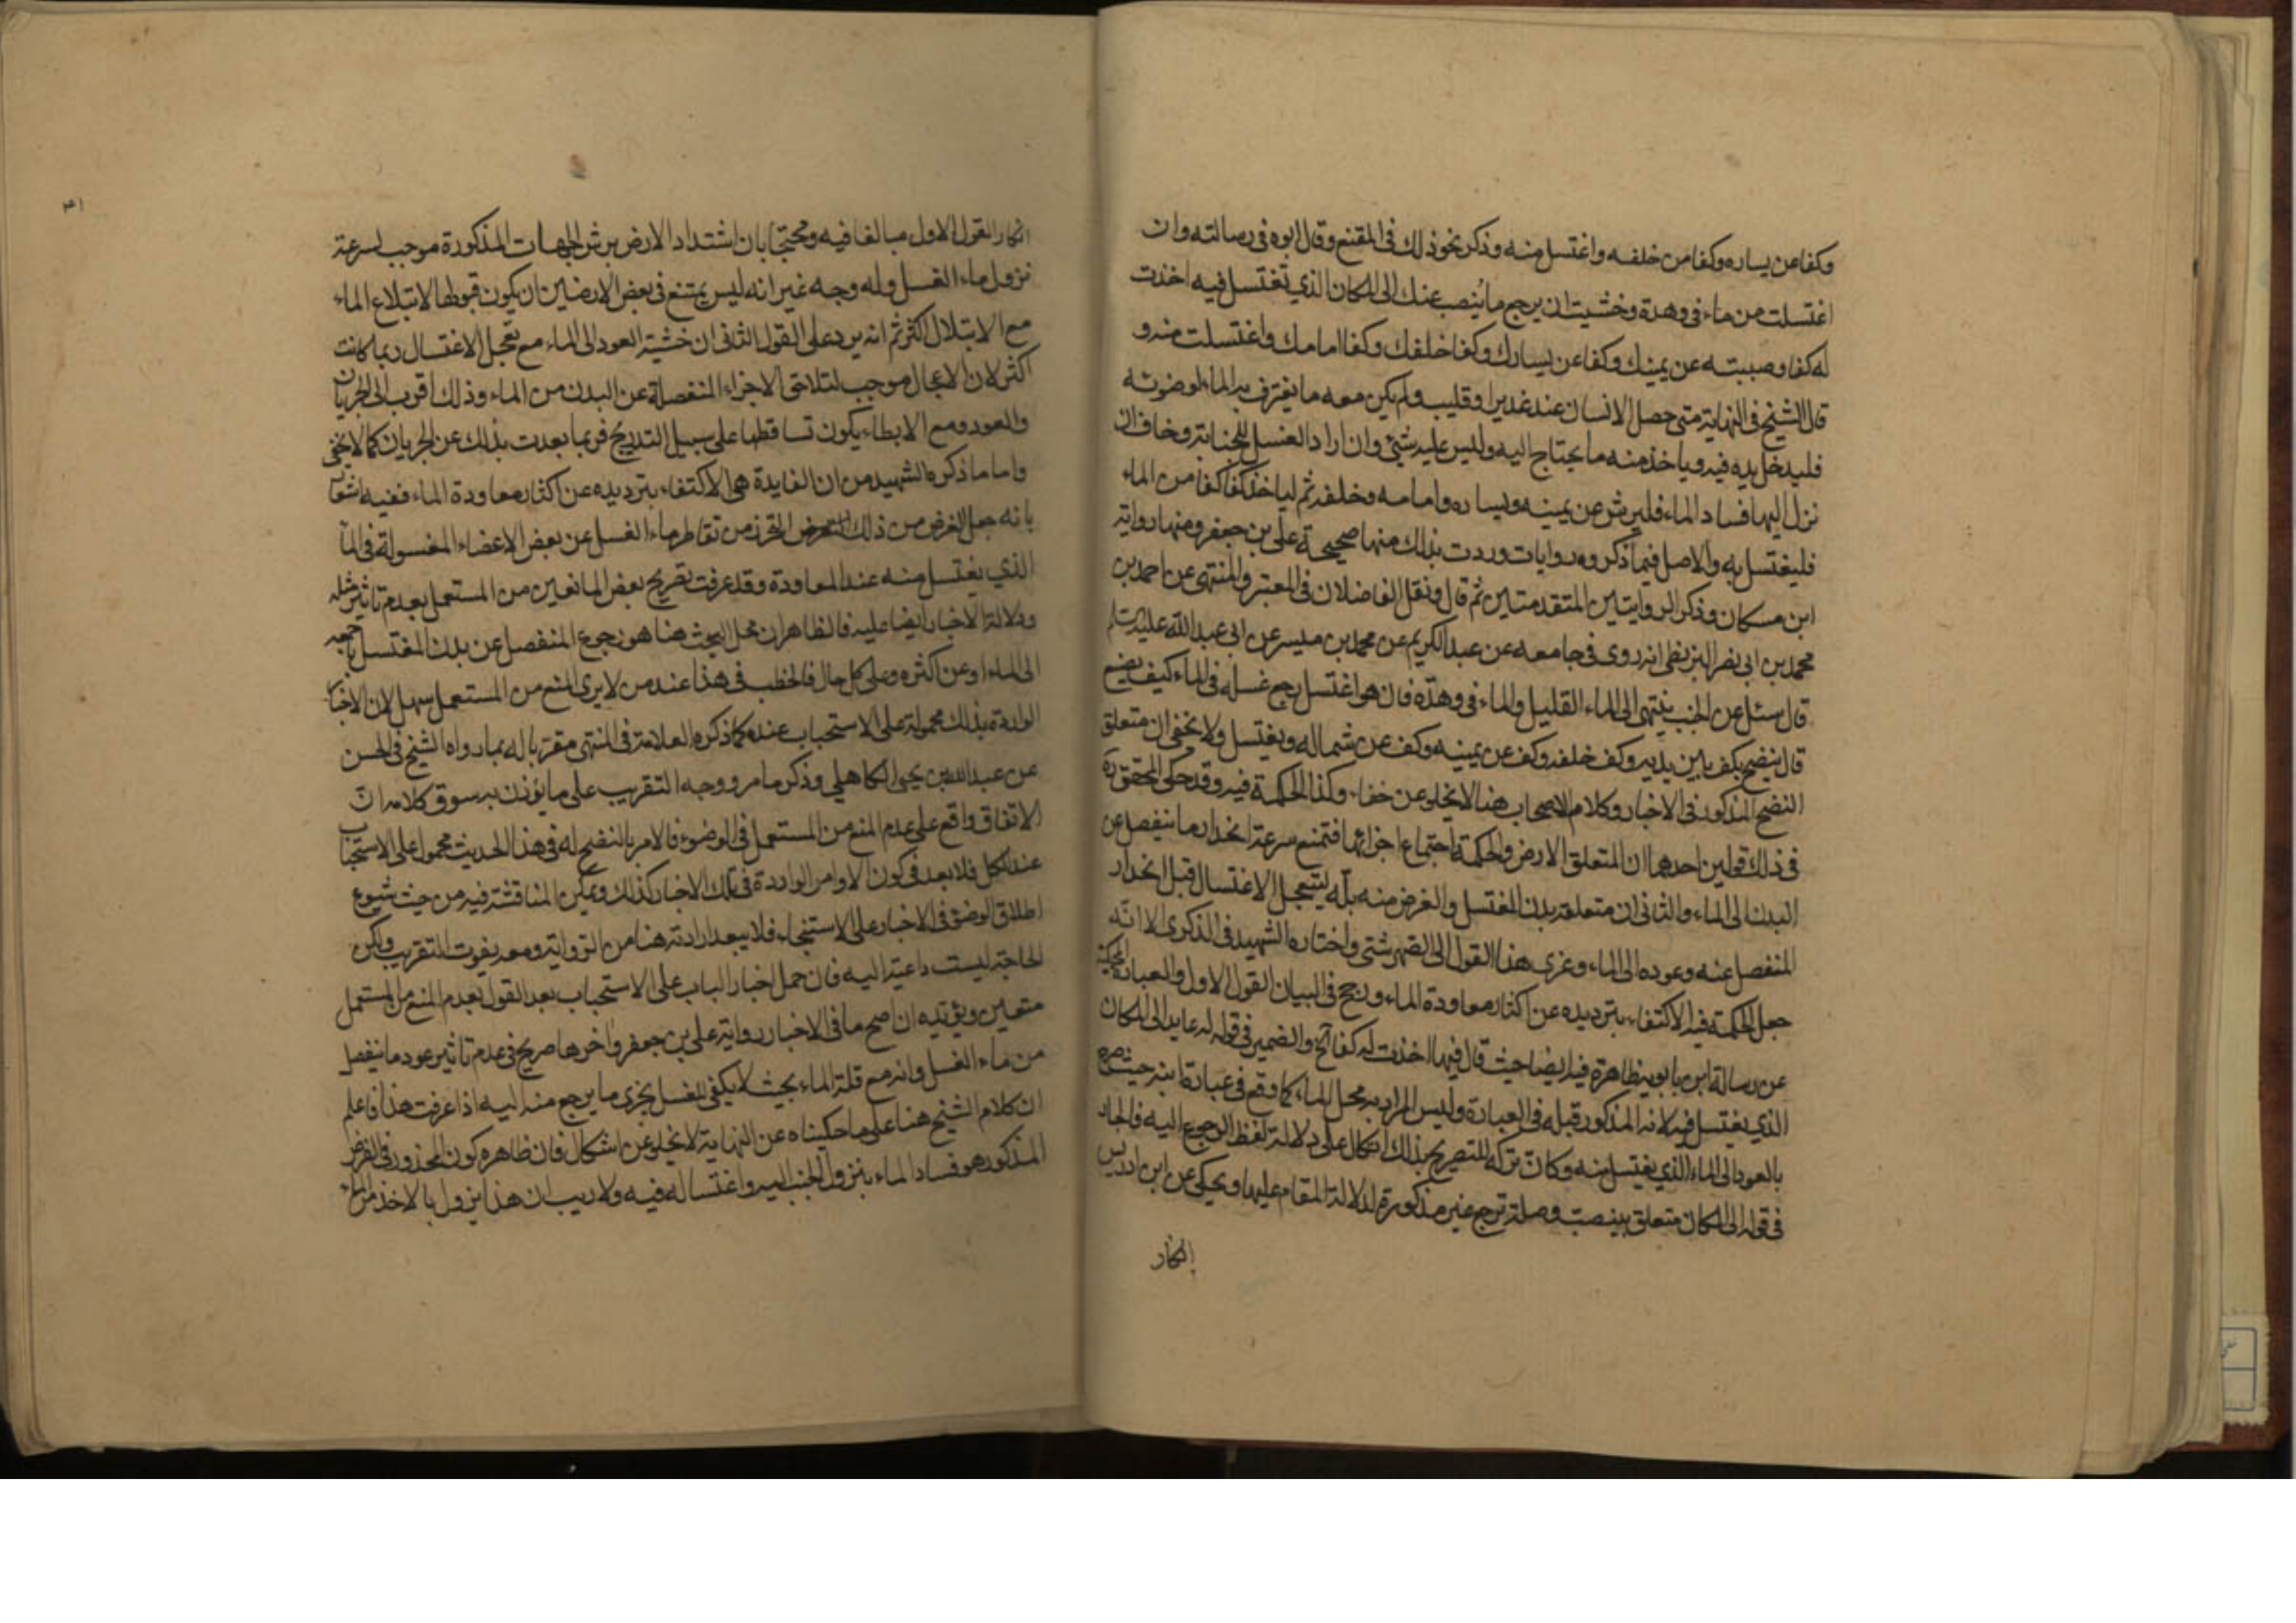 وكفا عن يساره وكفا من خلفه واغتسل منه وذكر نحو ذلك في المقنع وقال ابوه في رسالته وان
اغتسلت من ماء في وهدة وخشيت ان يرجع ما ينصب عنك الى المكان الذي تغتسل فيه اخذت
له كفا وصببته عن يمينك وكفا عن يسارك وكفا خلفك وكفا امامك واغتسلت منه و
قال الشيخ في النهاية متى حصل الانسان عند غدير او قليب ولم يكن معه ما يغترف به الماء لوضوئه
فليدخل يده فيه وياخذ منه ما يحتاج اليه وليس عليه شئ وان اراد الغسل للجنابة وخاف ان
نزل اليها فساد الماء فليرش عن يمينه ويساره وامامه وخلفه ثم لياخذ كفا كفا من الماء
فليغتسل به والاصل فيما ذكروه روايات وردت بذلك منها صحيحة علي بن جعفر ومنها رواية
ابن مسكان وذكر الروايتين المتقدمتين ثم قال ونقل الفاضلان في المعتبر والمنتهى عن احمد بن
محمد بن ابي نصر البزنطي انه روى في جامعه عن عبد الكريم عن محمد بن ميسر عن ابي عبد الله عليه السلام
قال سئل عن الجنب ينتهى الى الماء القليل والماء في وهدة فان هو اغتسل رجع غسله في الماء كيف يصنع
قال ينضح بكف بين يديه وكف خلفه وكف عن يمينه وكف عن شماله ويغتسل ولا يخفى ان متعلق
النضح المذكور في الاخبار وكلام الاصحاب هنا لا يخلو عن خفاء وكذا الحكمة فيه وقد حكى المحقق ره
في ذلك قولين احدهما ان المتعلق الارض والحكمة اجتماع اجزائها فتمنع سرعة انحدار ما ينفصل عن
البدن الى الماء والثاني ان متعلقه بدن المغتسل والغرض منه بله ليتعجل الاغتسال قبل انحدار
المنفصل عنه وعوده الى الماء وعزى هذا القول الى الصهرشتي واختاره الشهيد في الذكرى الا انه
جعل الحكمة فيه الاكتفاء بترديده عن اكثار معاودة الماء ورجح في البيان القول الاول والعبارة المحكية
عن رسالة ابن بابويه ظاهرة فيه ايضا حيث قال فيها اخذت له كفا آلخ والضمير في قوله له عايد الى المكان
الذي يغتسل فيه لانه المذكور قبله في العبارة وليس المراد به محل الماء كما وقع في عبارة ابنه حيث صرح
بالعود الى الماء الذي يغتسل منه وكان تركه للتصريح بذلك اتكال على دلالة لفظ الرجوع اليه فالجار
في قوله الى المكان متعلق بينصب وصلة ترجع غير مذكورة لدلالة المقام عليها ويحكى عن ابن ادريس
انكار
انكار القول الاول مبالغا فيه ومحتجا بان اشتداد الارض برش الجهات المذكورة موجب لسرعة
نزول ماء الغسل وله وجه غير انه ليس يمتنع في بعض الارضين ان يكون قبولها لابتلاع الماء
مع الابتلال اكثر ثم انه يرد على القول الثاني ان خشية العود الى الماء مع تعجل الاغتسال ربما كانت
اكثر لان الاعجال موجب لتلاحق الاجزاء المنفصلة عن البدن من الماء وذلك اقرب الى الجريان
والعود ومع الابطاء يكون تساقطها على سبيل التدريج فربما بعدت بذلك عن الجريان كما لا يخفى
واما ما ذكره الشهيد من ان الفايدة هي الاكتفاء بترديده عن اكثار معاودة الماء ففيه اشعار
بانه جعل الغرض من ذلك التحرز من تقاطر ماء الغسل عن بعض الاعضاء المغسولة في المآ
الذي يغتسل منه عند المعاودة وقد عرفت تصريح بعض المانعين من المستعمل بعدم تاثير مثله
ودلالة الاخبار ايضا عليه فالظاهر ان محل البحث هنا هو رجوع المنفصل عن بدن المغتسل باجمعه
الى الماء او عن اكثره وعلى كل حال فالخطب في هذا عند من لا يرى المنع من المستعمل سهل لان الاخبار
الواردة بذلك محمولة على الاستحباب عنده كما ذكره العلامة في المنتهى مقربا له بما رواه الشيخ في الحسن
عن عبد الله بن يحيى الكاهلي وذكر ما مر ووجه التقريب على ما يؤذن به سوق كلامه ان
الاتفاق واقع على عدم المنع من المستعمل في الوضوء فالامر بالنضح له في هذا الحديث محمول على الاستحباب
عند الكل فلا بعد في كون الاوامر الواردة في تلك الاخبار كذلك ويمكن المناقشة فيه من حيث شيوع
اطلاق الوضوء في الاخبار على الاستنجاء فلا يبعد ارادته هنا من الرواية ومعه يفوت التقريب ولكن
الحاجة ليست داعية اليه فان حمل اخبار الباب على الاستحباب بعد القول بعدم المنع من المستعمل
متعين ويؤيده ان اصح ما في الاخبار رواية علي بن جعفر وآخرها صريح في عدم تاثير عود ما ينفصل
من ماء الغسل وانه مع قلة الماء بحيث لا يكفى للغسل يجزى ما يرجع منه اليه اذا عرفت هذا فاعلم
ان كلام الشيخ هنا على ما حكيناه عن النهاية لا يخلو عن اشكال فان ظاهره كون المحذور في الفرض
المذكور هو فساد الماء بنزول الجنب اليه واغتساله فيه ولا ريب ان هذا يزول بالاخذ من الماء